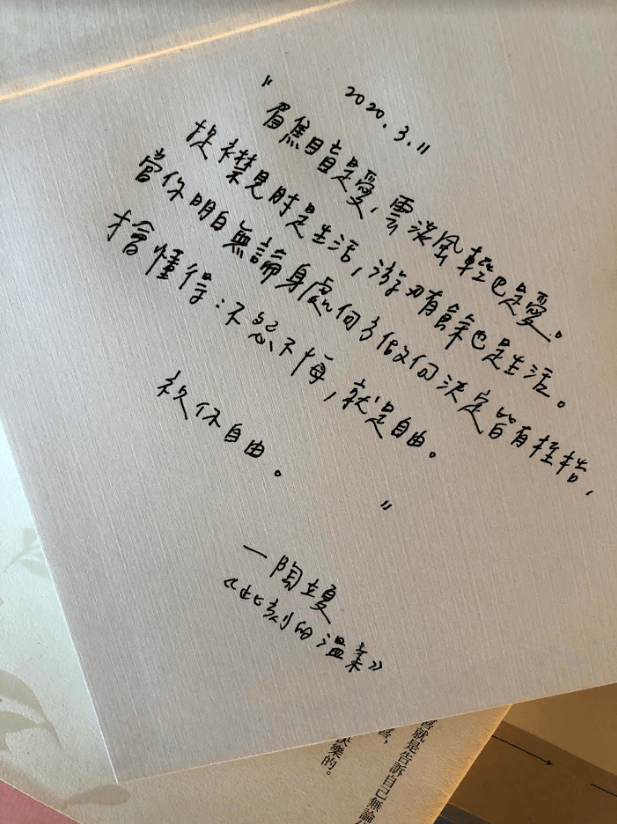 2020.3.11
"眉焦目是愛,雲淡風輕也是愛。
捉襟見肘是生活,游刃有餘也是生活。
當你明白無論身處何方做何決定皆有桎梏,
才會懂得:不怨不悔,就是自由。
祝你自由。"
—陶立夏
《此刻的溫柔》
就是告訴自己無論
樂的。